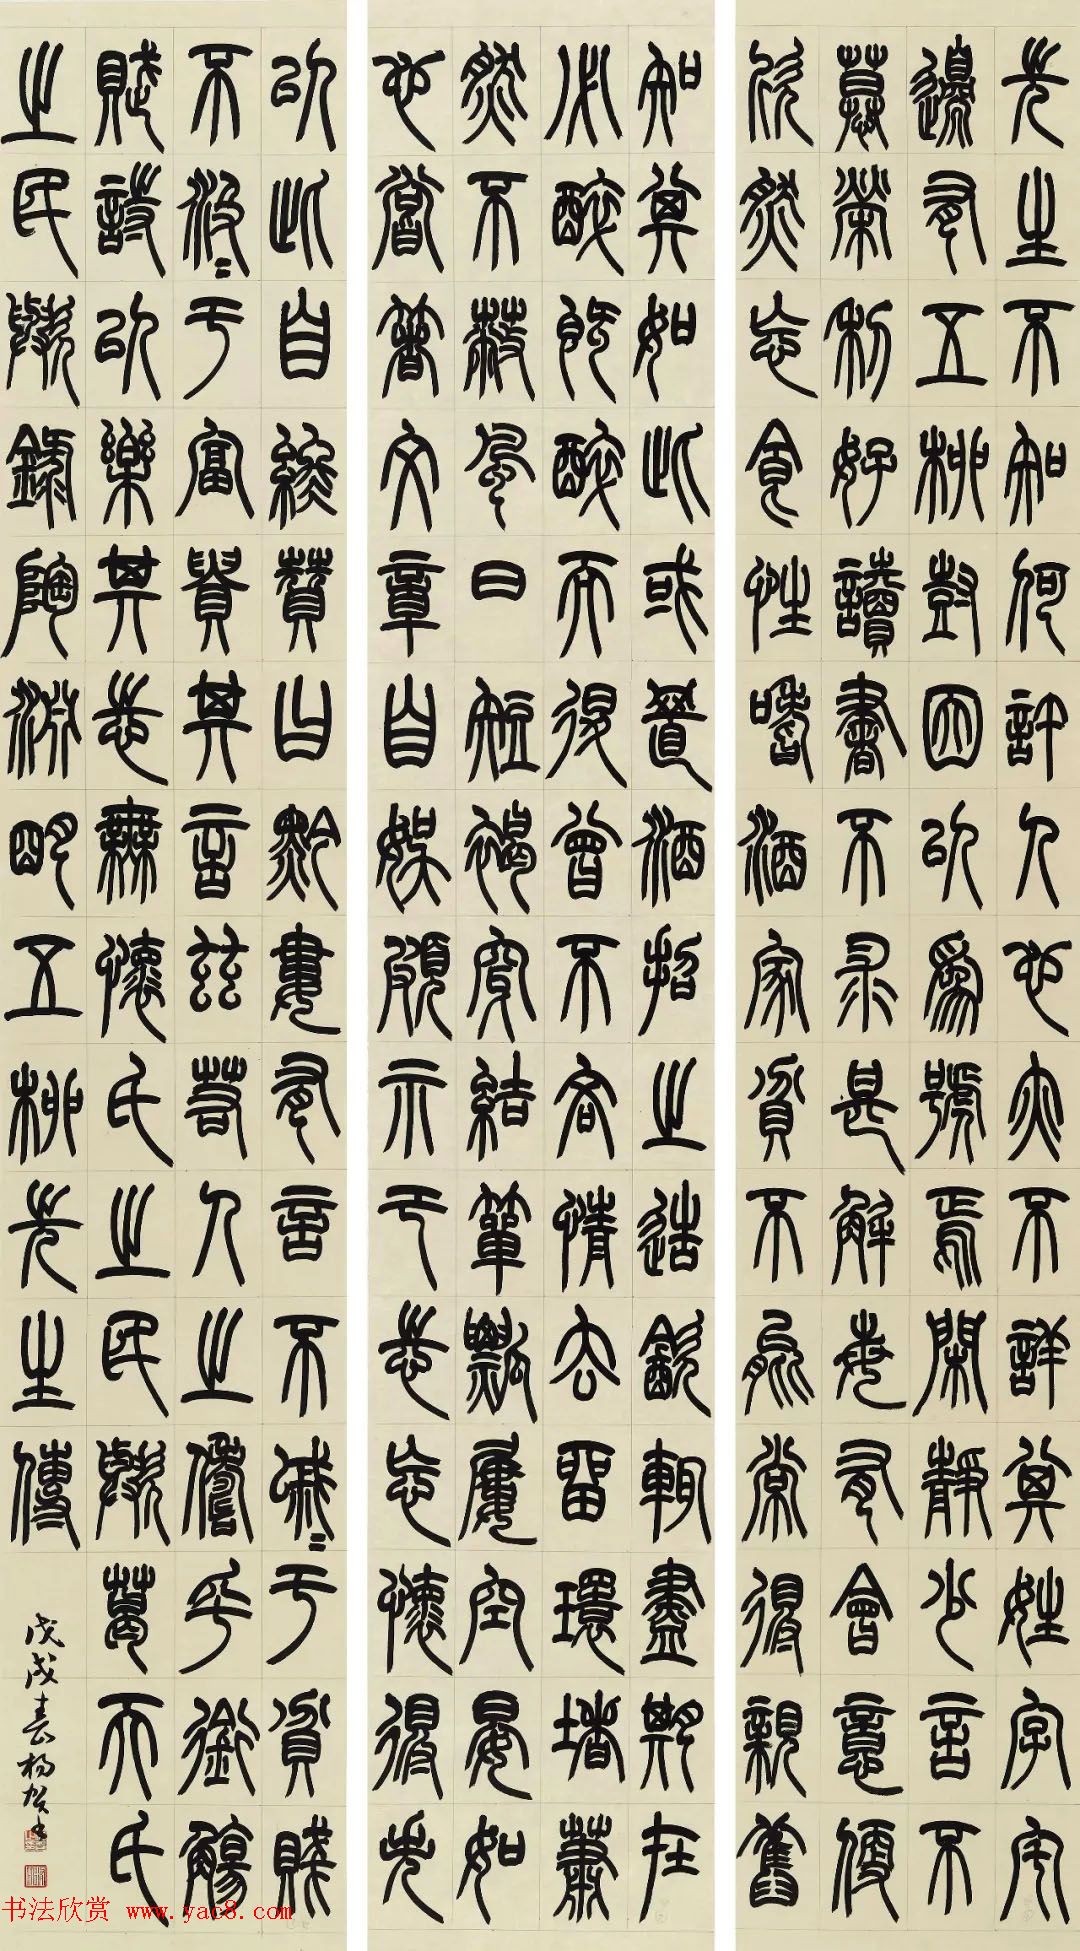 先生不知何許人也亦不詳其姓字宅
邊有五柳樹因以為號焉閑靜少言不
慕榮利好讀書不求甚解每有會意便
欣然忘食性嗜酒家貧不能常得親舊
知其如此或置酒招之造飲輒盡期在
必醉既醉而退曾不吝情去留環堵蕭
然不蔽風日短褐穿結簞瓢屢空晏如
也嘗著文章自娛頗示己志忘懷得失
以此自終贊曰黔婁有言不戚〻于貧賤
不汲〻于富貴其言茲若人之儔乎銜觴
賦詩以樂其志無懷氏之民歟葛天氏
之民歟錄陶淵明五柳先生傳
戊戌春楊賀
书法欣赏 www.yac8.com